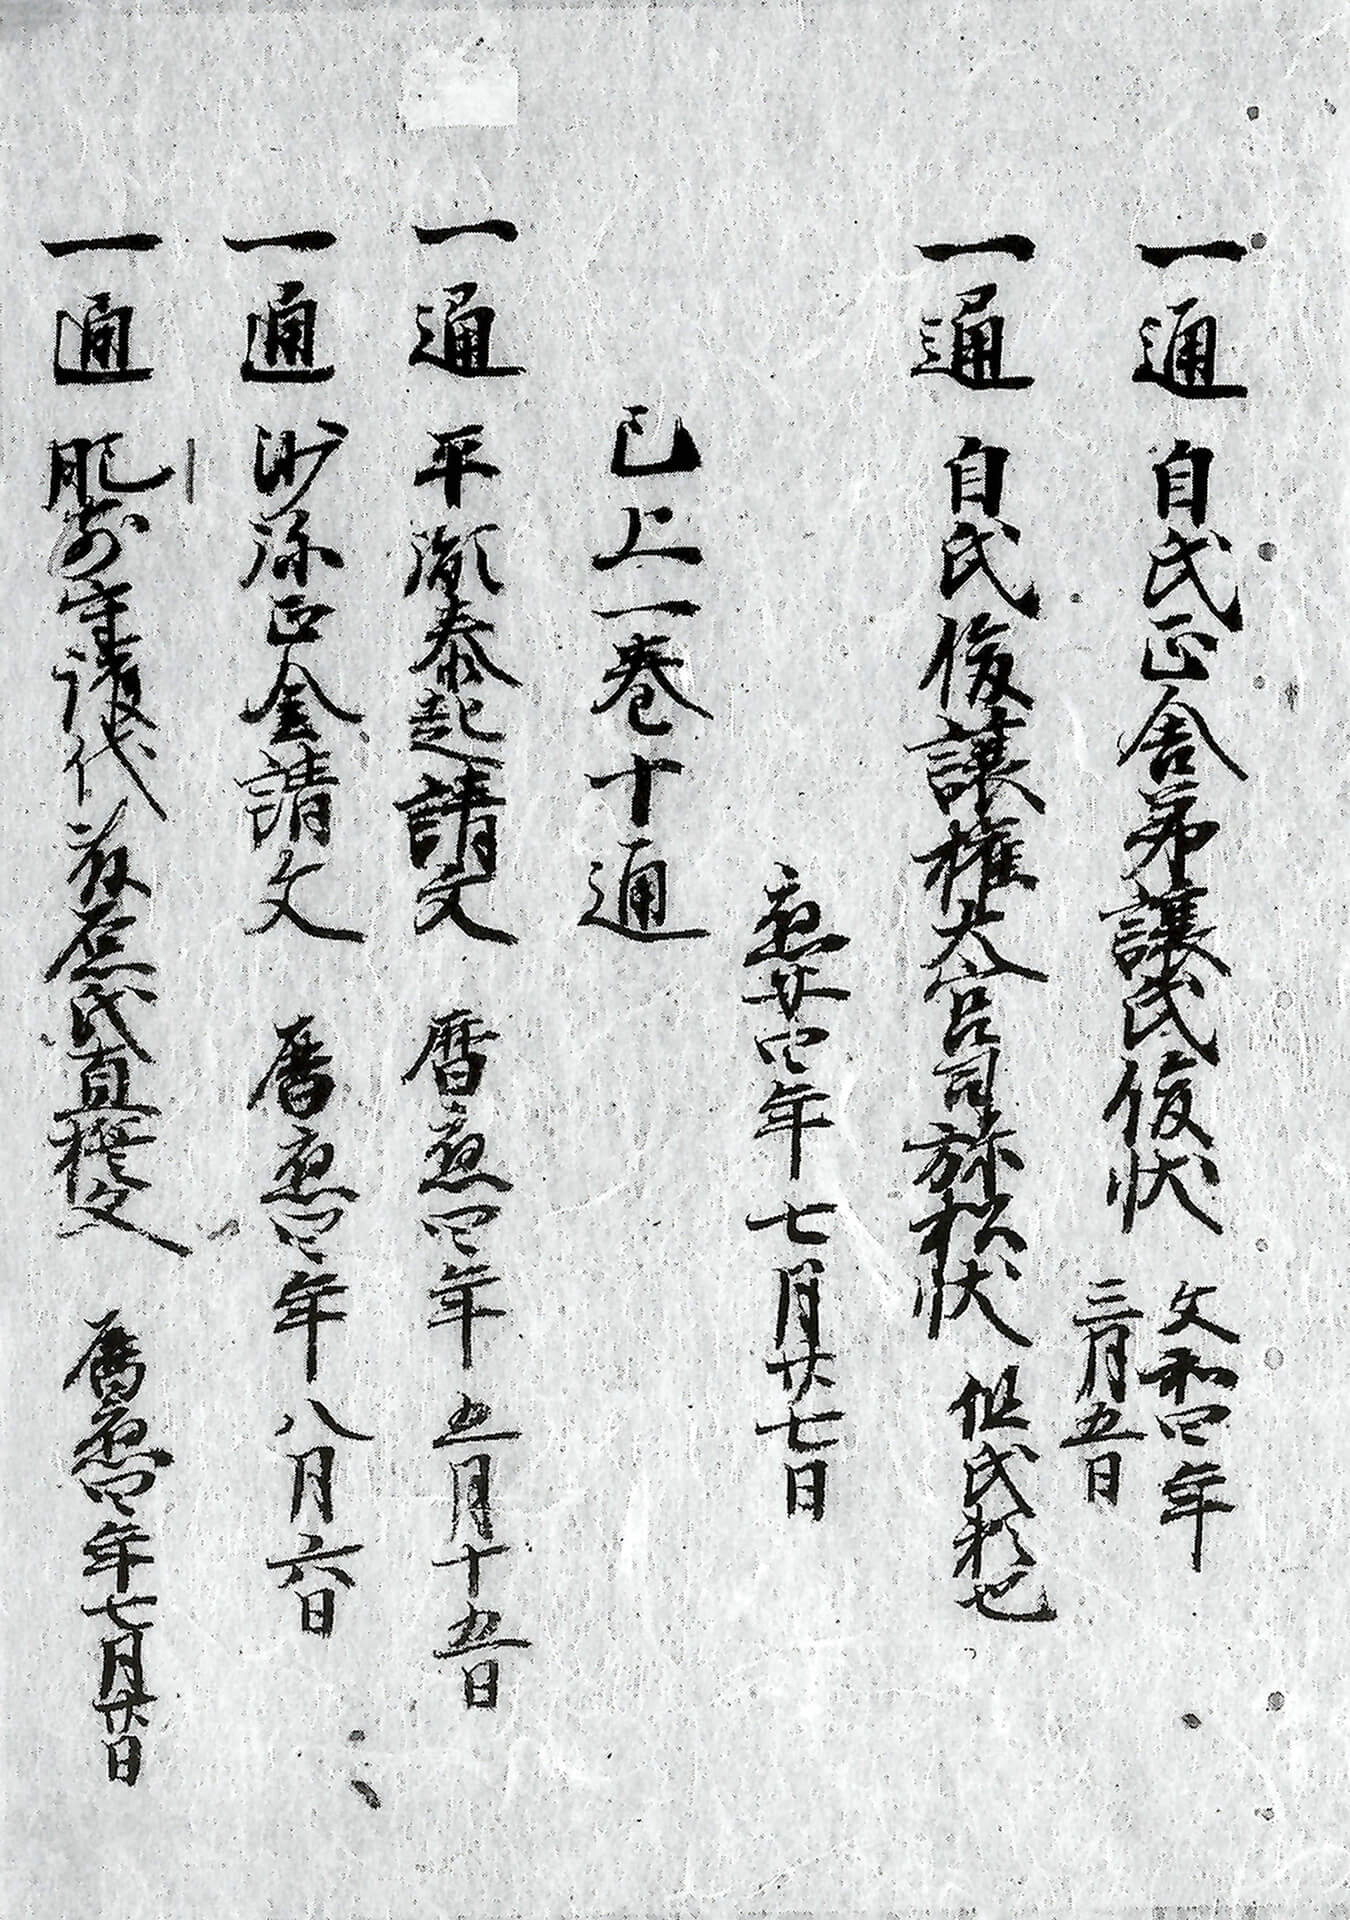 一通 自氏正舎弟譲氏俊状 文和四年
三月五日
一通 自氏俊譲権大宮司弥松状 但氏頼也
応廿四年七月廿七日
已上一巻十通
一通 平胤泰起請文 暦応四年五月十五日
一通 沙弥正全請文 暦応四年八月六日
一通 肥前守護代 氏直挙文 暦応四年七月廿日